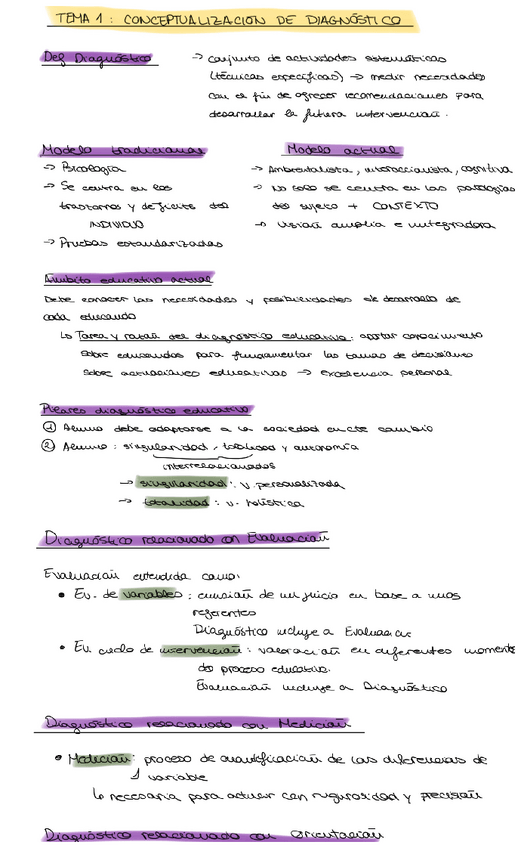 TEMA 1: CONCEPTUALIZACIÓN DE DIAGNÓSTICO
Def Diagnóstico → conjunto de actividades sistemáticas
(técnicas específicas) → medir necesidades
con el fin de ofrecer recomendaciones para
desarrollar la futura intervención.
Modelo tradicional
→ Psicología
→ Se centra en los
trastornos y déficits del
INDIVIDUO
→ Pruebas estandarizadas
Modelo actual
→ Ambientalista, interaccionista, cognitiva
→ No solo se centra en las patologías
del sujeto + CONTEXTO
→ Visión amplia e integradora
Ámbito educativo actual
Debe conocer las necesidades y posibilidades de desarrollo de
cada educando
↳ Tarea y razón del diagnóstico educativo: aportar conocimiento
sobre educandos para fundamentar las tomas de decisiones
sobre actuaciones educativas → excelencia personal
Pilares diagnóstico educativo
① Alumno debe adaptarse a la sociedad en cte cambio
② Alumno: singularidad, totalidad y autonomía
interrelacionados
→ singularidad: v. personalizada
→ totalidad: v. holística
Diagnóstico relacionado con Evaluación
Evaluación entendida como:
• Ev. de variables: emisión de un juicio en base a unos
referentes
Diagnóstico incluye a Evaluación
• Ev. ciclo de intervención: valoración en diferentes momentos
del proceso educativo.
Evaluación incluye a Diagnóstico
Diagnóstico relacionado con Medición
• Medición: proceso de cuantificación de las diferencias de
1 variable
↳ necesaria para actuar con rigurosidad y precisión
Diagnóstico relacionado con Orientación